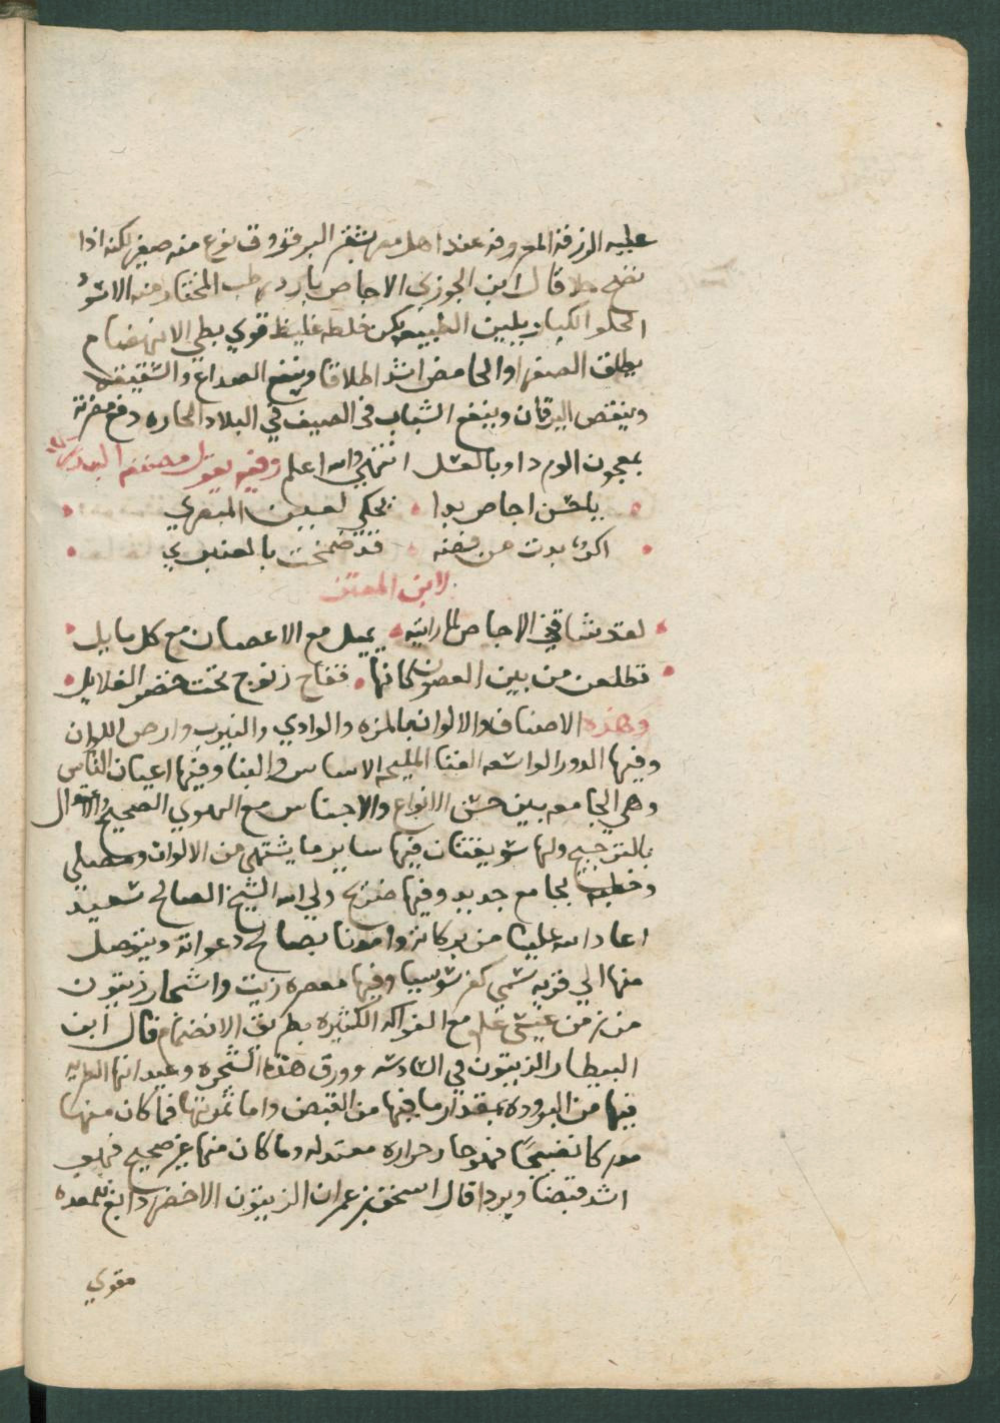 عليه الزرقة المعروفه عند اهل مصر بشقر البرقوق وهو نوع منه صغير لكنه اذا
نضج حلا قال ابن الجوزي الاجاص بارد رطب المختار منه الاسود
الحلو الكبار يلين الطبيعه لكن خلطه غليظ قوي بطي الانهضام
يطلق الصفرا والحامض اشد اطلاقا وينفع الصداع والشقيقه
وينقص اليرقان وينفع الشباب في الصيف في البلاد الحاره دفع مضرته
بمعجون الورد او بالعسل انتهي والله اعلم وفيه يقول مصنفه البدري
يا حسن اجاص بدا يحكي لعين المبصري
اكر بدت من فضه قد ضمخت بالعنبري
لابن المعتز
لقد شاقني الاجاص لما رايته يميل مع الاغصان مع كل مايل
تطلعن من بين الغصون كانها تفاح زنوج تحت خضر الغلايل
وهذه الاصناف والالوان بالمزه والوادي والنيرب وارض اللوان
وفيها الدور الواسعه الفنا المليحه الاساس والبنا وفيها اعيان الناس
وهي الجامعه بين حسن الانواع والاجناس مع الهوي الصحيح والاقوال
بالترجيح ولها سويقتان فيها ساير ما يشتهي من الالوان ومصلي
وخطبه بجامع جديد وفيها ضريح ولي الله الشيخ الصالح سعيد
اعاد الله علينا من بركاته وامدنا بصالح دعواته ويتوصل
منها الي قريه تسمي كفر سوسيا وفيها معصره زيت واشجار زيتون
من زمن عيسي عليه مع الفواكه الكثيره بطريق الانضمام قال ابن
البيطار الزيتون في السادسه وورق هذه الشجره وعيدانها الطريه
فيها من البروده بمقدار ما فيها من القبض واما ثمرتها فما كان منها
مدركا نضيجًا فهو حار حراره معتدله وما كان منها غير صحيح فهو
اشد قبضا وبردا قال اسحق بن عمران الزيتون الاخضر دابغ للمعده
مقوي